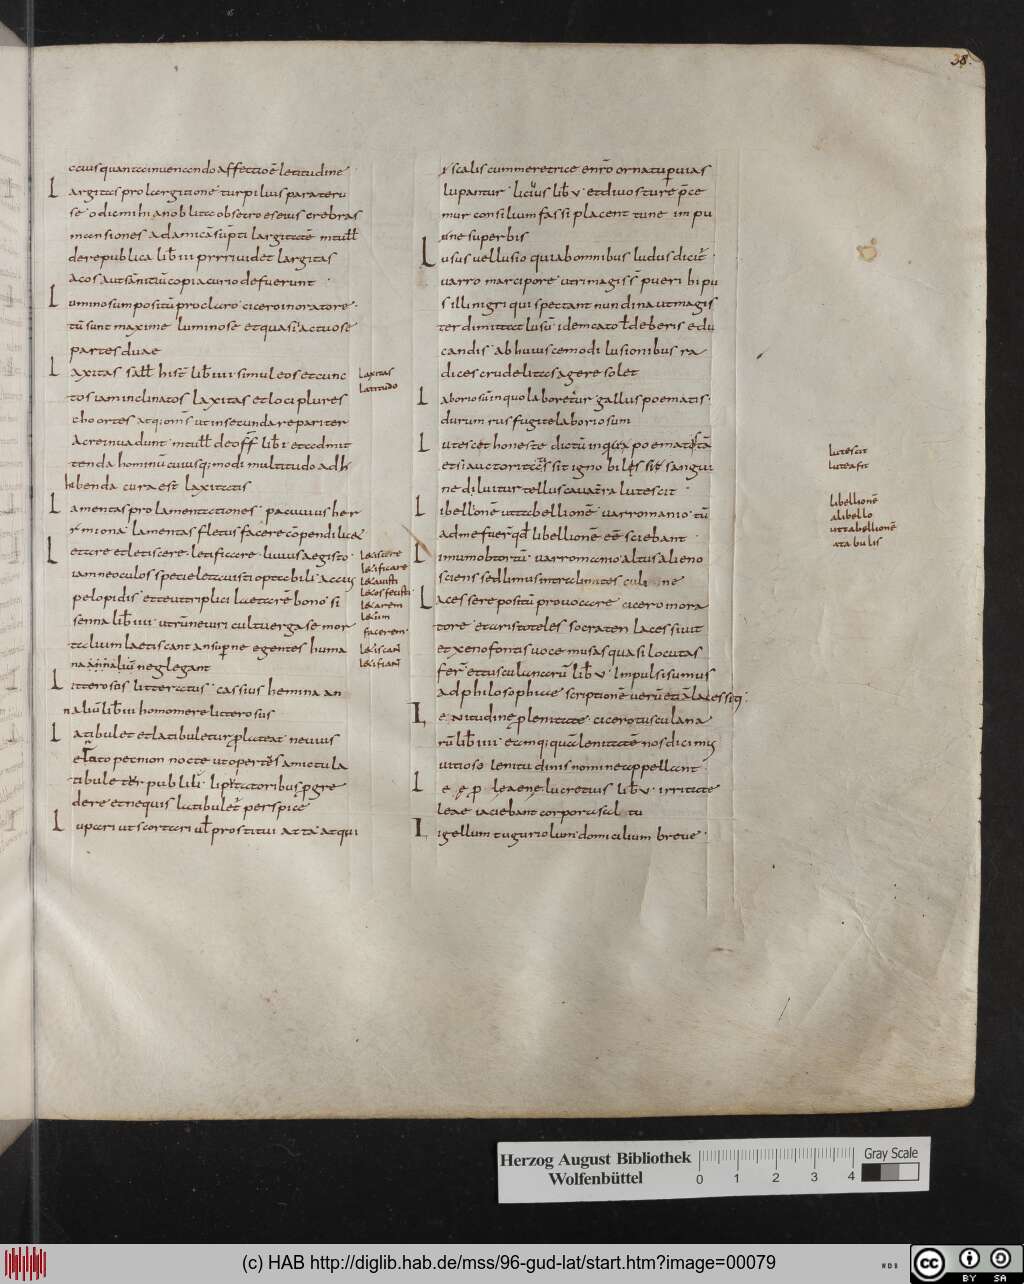 38.
cciusquantoinuenendo affectio ē letitudine
Largitas pro largitione turpiluis parateru
se odicmihi anoblita obsecro eseius crebras
mansiones adamicā sūpti largitatē mtull
derepublica lib iii prrr iuidet largitas
acosautsāntiū copia curio defuerunt
Luminosum positū proclaro cicero inoratore
tū sunt maxime luminose etquasi actuose
partes duae
Laxitas sall hist lib iiii simuleosetcunc
tos iaminclinatos laxitas etloci plures
chortes atq; omīs ut insecundare pariter
Acreinuadunt mtull deoff lib i etadmit
tenda hominū cuiusq; modi multitudo adhi
hibenda cura est laxitatis
Lamentas pro lamentationes pacuuius her
miona lamentas fletus facere cōpendi licet
Laetare etletiscere letificare liuius aegisto
iamneoculos specielaetauisti optabili accius
pelopidis etteututriplici laetarē bono si
senna lib iiii utrūneuiri cultu ergase mor
talium laetiscant ansuperne egentes huma
na annaliū neglegant
Litterosus litteratus cassius hemina an
naliū lib iii homo mere litterosus
Latibulet etlatibuletur pluteat neuius
nocte utopertus amictula
tibulet publili liptatoribus pgre
dere etnequis latibulet perspice
Lupari utscortari ul prostitui atta atqui
Laxitas
Latitudo
Letiscere
Letificare
Facerem
yscalis cummeretrice enrō ornatuperuias
lupantur lucius lib v etdiuosture pce
mur consilium fassi placent tune inpu
ne superbis
Lusus uellusio quiabomnibus ludusdicit
uarro marcipore utrimagis pueri bipu
sillinigri quispectant nundinautmagis
ter dimittat lusū idemcato deliberis edu
candis abhuiuscemodi lusionibus ra
dices crudelitas agere solet
Laboriosū inquolaboretur galluspoematis
durum rus fugitelaboriosum
Lutescet honeste dictū inquia
etsi auctoritas sit ignobiles sie sangui
ne diluitur tellus lutescit
Libellionē uttabellionē uarromanio tū
admefuer qd libellionē eē sciebant
Limumobtortū uarromanio altusalieno
sciens sedlimusintra limites
Lacessere positū prouocare cicero inora
tore etaristoteles socraten lacessiuit
etxenofontis uoce musas quasi locutas
fer ettusculanarū lib v Impulsisumus
adphilosophiae scriptionē uerūetiā lacessiti
Lenitudine p lenitate cicerotusculana
rū lib iiii etinq; quā lenitatē nos dicimus
uitioso lenitudinis nomineappellant
Leae p leaene lucretius lib v irritate
leae iaciebant corpora
Ligellum tuguriolum domicilium breue
lutescit
luteafit
libellionē
alibello
uttabellionē
atabulis
Herzog August Bibliothek
Wolfenbüttel
0 1 2 3 4
Gray Scale
(c) HAB http://diglib.hab.de/mss/96-gud-lat/start.htm?image=00079
WDB
cc BY SA